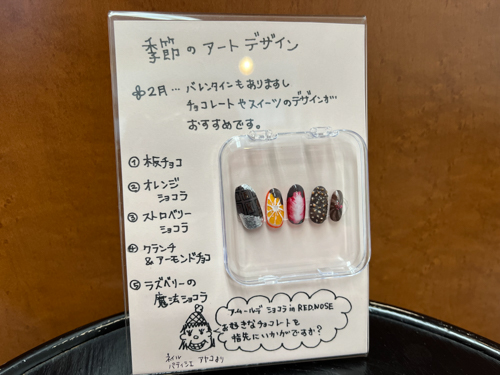 季節のアートデザイン
2月…バレンタインもありますし
チョコレートやスイーツのデザインが
おすすめです。
① 板チョコ
② オレンジ
ショコラ
③ ストロベリー
ショコラ
④ クランチ
&アーモンドチョコ
⑤ ラズベリーの
魔法ショコラ
ショコラ in RED.NOSE
お好きなチョコレートを
指先にいかがですか?
ネイル
パティシエ アヤコより